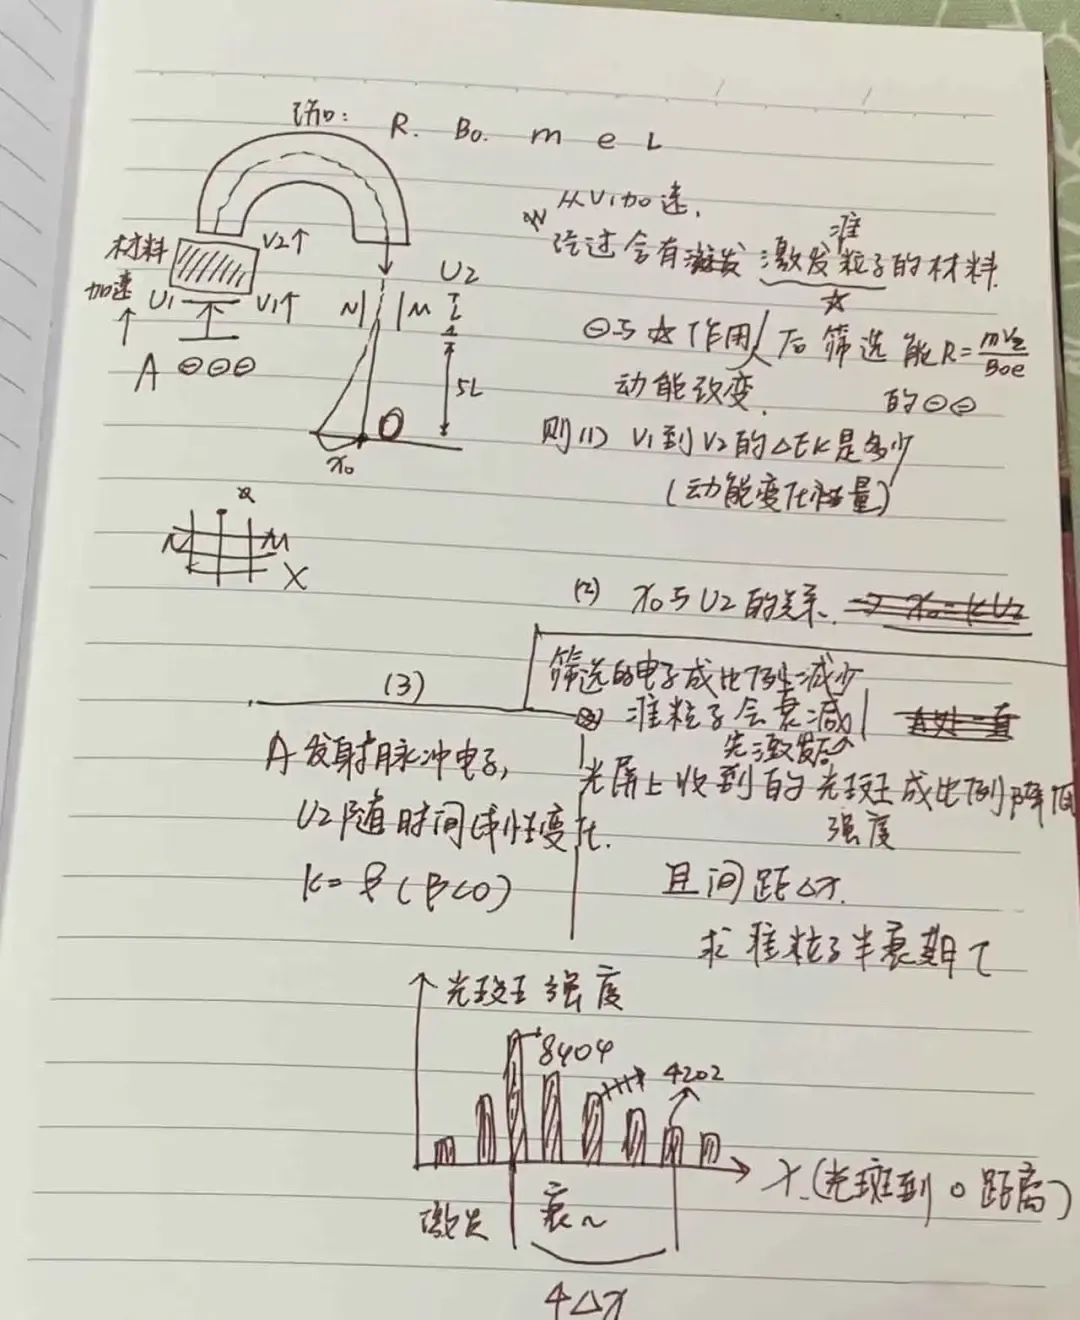 R. B₀. m e L
从V1加速,
经过会有激发 激发准粒子的材料.
材料
V2↑
U2
加速
U1
V1↑
N
M
L
5L
A ⊖⊖⊖
O
x₀
⊖与☆作用 后 筛选 能R=mV₂/B₀e
动能改变. 的⊖⊖
则(1) V1到V2的△EK是多少
(动能变化量)
N
M
X
(2) x₀与U2的关系. → x₀=kU2
筛选的电子成比例减少
(3)
准粒子会衰减
先激发后
A发射脉冲电子,
光屏上收到的光斑成比例降低
强度
U2随时间线性变化.
k=β(β<0)
且间距△x.
求准粒子半衰期τ
光斑强度
8404
4202
x.(光斑到O距离)
激发
衰~
4△x